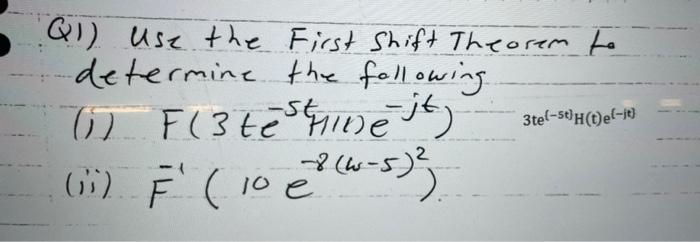 Q1) Use the First Shift Theorem to
determine the following
(i) F(3te^-5t H(t)e^-jt)
3te^(-5t)H(t)e^(-jt)
(ii) F^-1 (10 e^-8(w-5)^2).